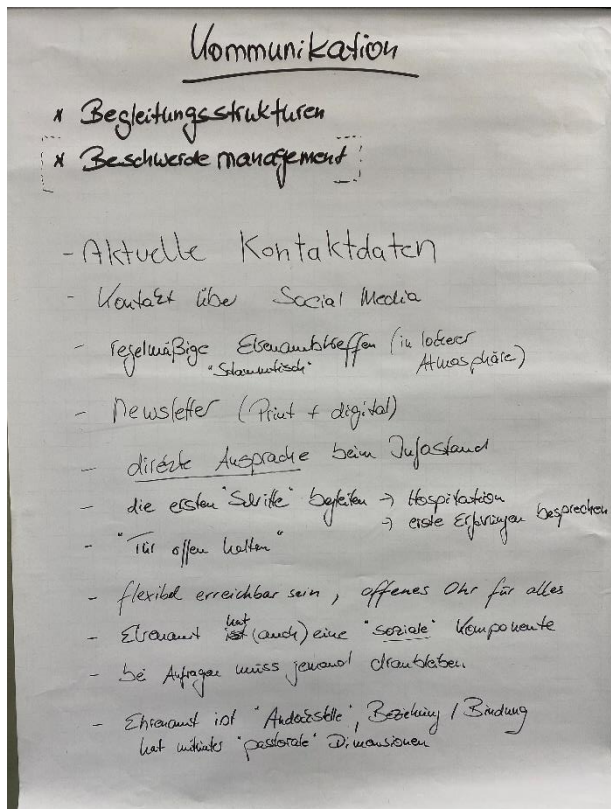 Kommunikation
* Begleitungsstrukturen
* Beschwerdemanagement
- Aktuelle Kontaktdaten
- Kontakt über Social Media
- regelmäßige Ehrenamtstreffen (in lockerer
"Stammtisch" Atmosphäre)
- Newsletter (Print + digital)
- direkte Ansprache beim Infostand
- die ersten "Schritte" begleiten → Hospitation
→ erste Erfahrungen besprechen
- "Tür offen halten"
- flexibel erreichbar sein, offenes Ohr für alles
- Ehrenamt hat (auch) eine "soziale" Komponente
- bei Anfragen muss jemand dranbleiben.
- Ehrenamt ist "Andockstelle", Beziehung / Bindung
hat mitunter "pastorale" Dimensionen